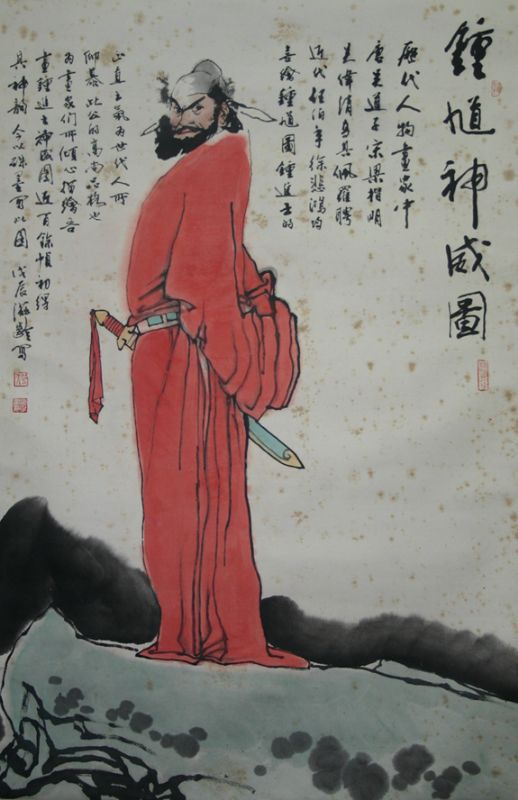 鍾馗神威圖
歷代人物畫家中
唐吴道子宋梁楷明
吴偉清羅聘
近代任伯年徐悲鴻均
喜繪鍾馗圖鍾進士的
正直之氣為世代人所
仰慕此公的高尚品格也
為畫家们所傾心描繪吾
畫鍾進士神威圖近百餘幀初得
具神韵今以硃墨寫此图
戊辰寫